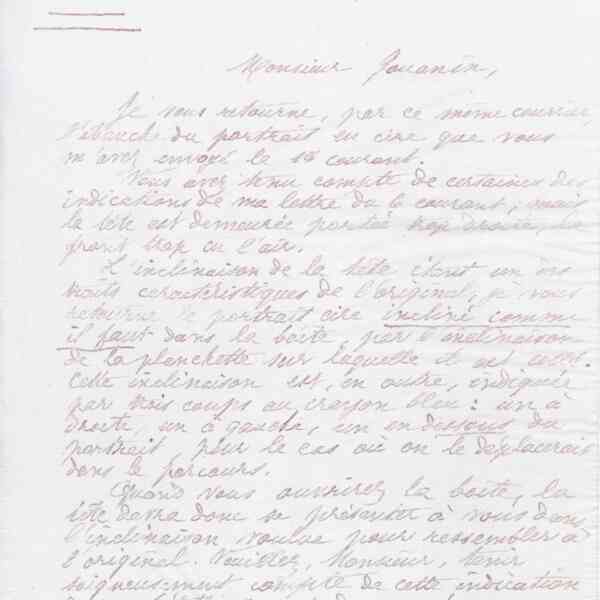 Monsieur Jouanin,
Je vous retourne, par ce même courrier,
l'ébauche du portrait en cire que vous
m'avez envoyé le 15 courant.
Vous avez tenu compte de certaines des
indications de ma lettre du 6 courant; mais
la tête est demeurée portée trop droite, le
front trop en l'air.
L'inclinaison de la tête étant un des
traits caractéristiques de l'original, je vous
retourne le portrait cire incliné comme
il faut dans la boîte, par l'inclinaison
de la planchette sur laquelle il est collé.
Cette inclinaison est, en outre, indiquée
par trois coups au crayon bleu: un à
droite, un à gauche, un en dessous du
portrait, pour le cas où on le déplacerait
dans le parcours.
Quand vous ouvrirez la boîte, la
tête devra donc se présenter à vous dans
l'inclinaison voulue pour ressembler à
l'original. Veuillez, Monsieur, tenir
soigneusement compte de cette indication